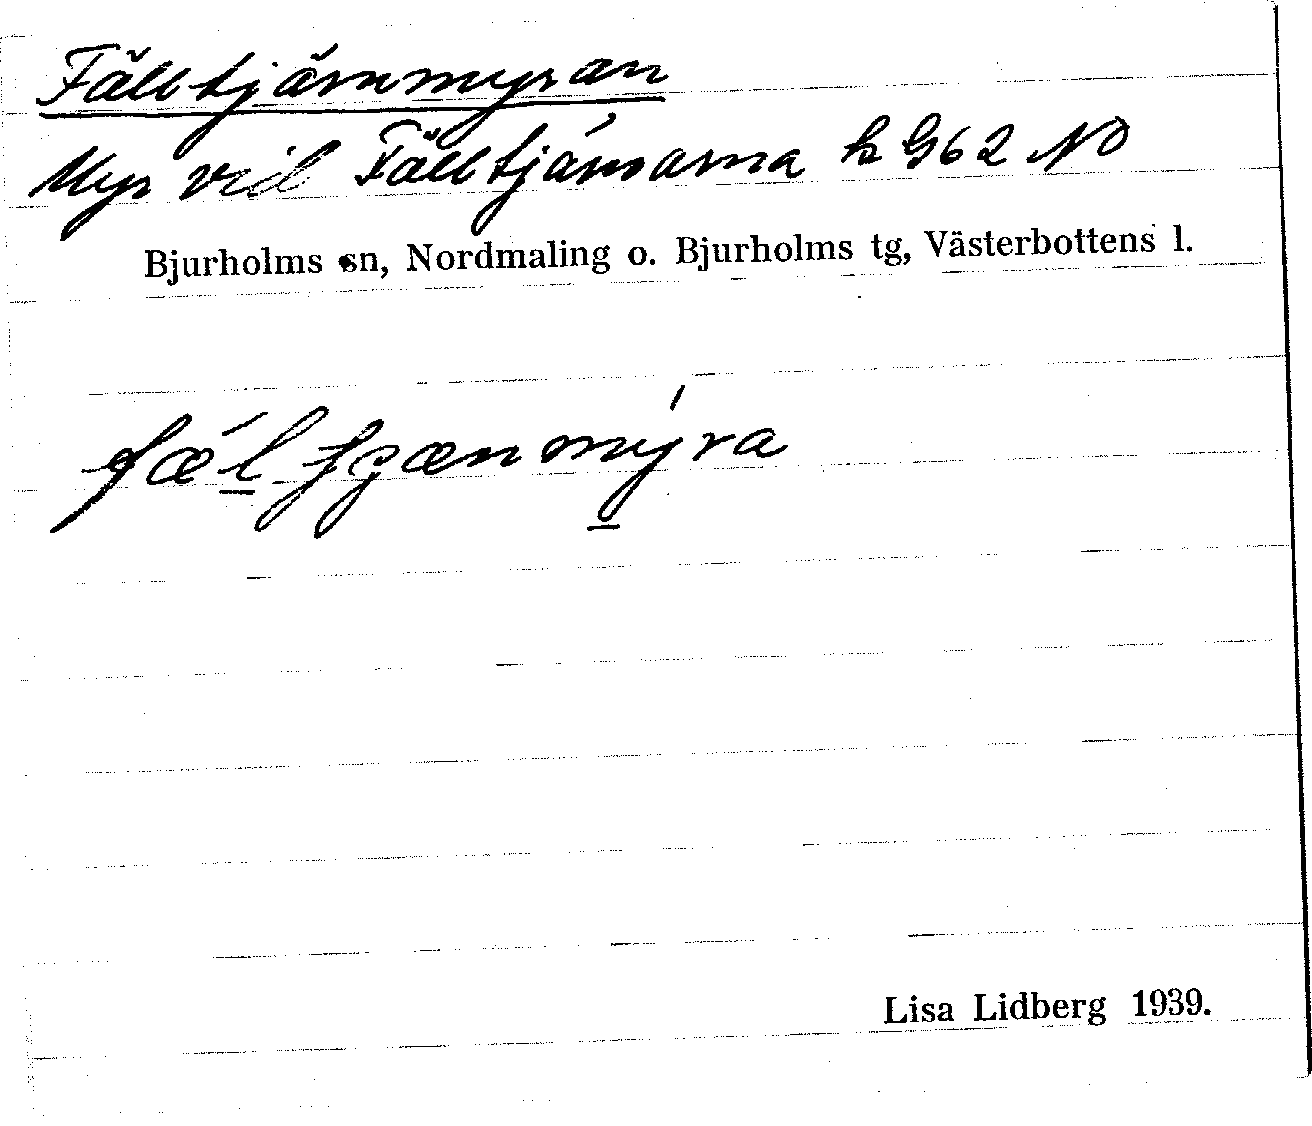 Fälltjärnmyran
Myr vid Fälltjärnarna k G62 NO
Bjurholms sn, Nordmaling o. Bjurholms tg, Västerbottens l.
Lisa Lidberg 1939.